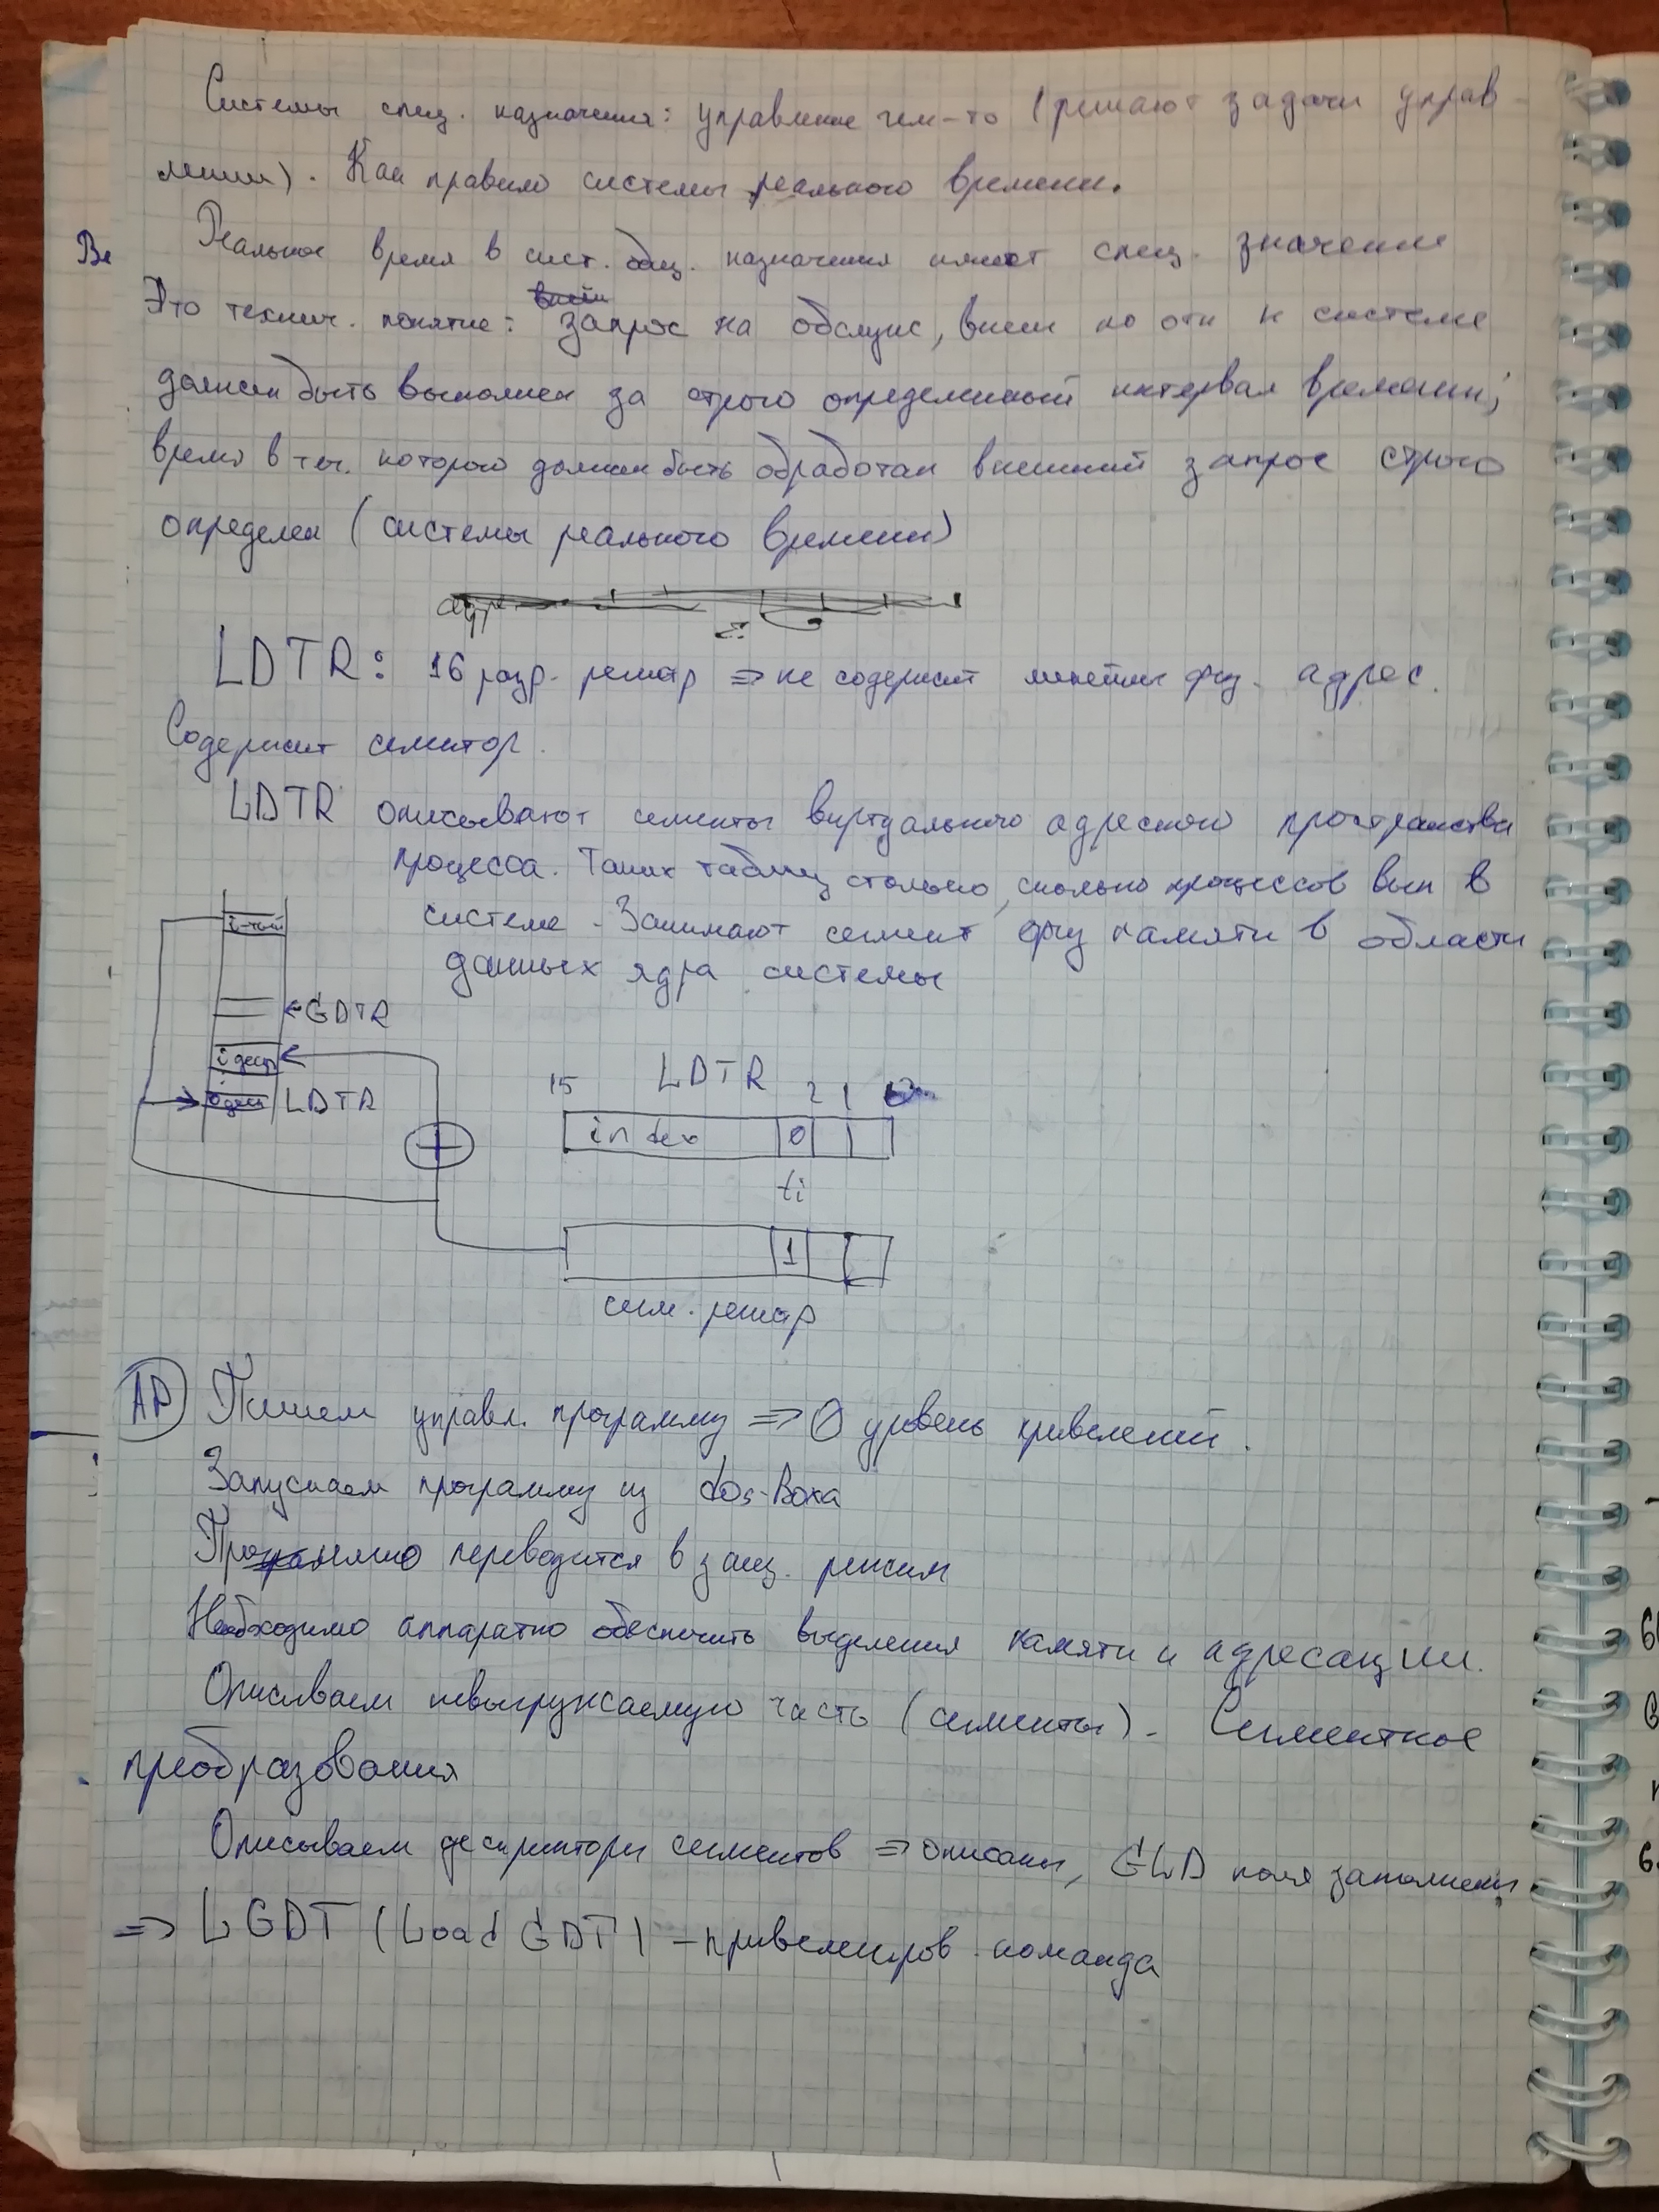 Системы спец. назначения: управление чем-то (решают задачи управ-
ления). Как правило системы реального времени.
Ве
Реальное время в сист. общ. назначения имеет спец. значение
Это технич. понятие: запрос на обслуж, внеш по отн к системе
должен быть выполнен за строго определенный интервал времени;
время в теч. которого должен быть обработан внешний запрос строго
определен (системы реального времени)
LDTR: 16 разр. регистр => не содержит линейн физ. адрес.
Содержит селектор.
LDTR описывают сегменты виртуального адресного пространства
процесса. Таких таблиц столько, сколько процессов вып в
системе. Занимают сегмент физ памяти в области
данных ядра системы
i-тый
GDTR
i деск
0 деск LDTR
LDTR
15 2 1 0
index 0
ti
1
сегм. регистр
ЛР Пишем управл. программу => 0 уровень привелегий.
Запускаем программу из dos-Boxa
Программно переводится в защ. режим
Необходимо аппаратно обеспечить выделения памяти и адресации.
Описываем невыгружаемую часть (сегменты). Сегментное
преобразования
Описываем дескрипторы сегментов => описаны, поля заполнены
=> LGDT (Load GDT) - привелегиров. команда